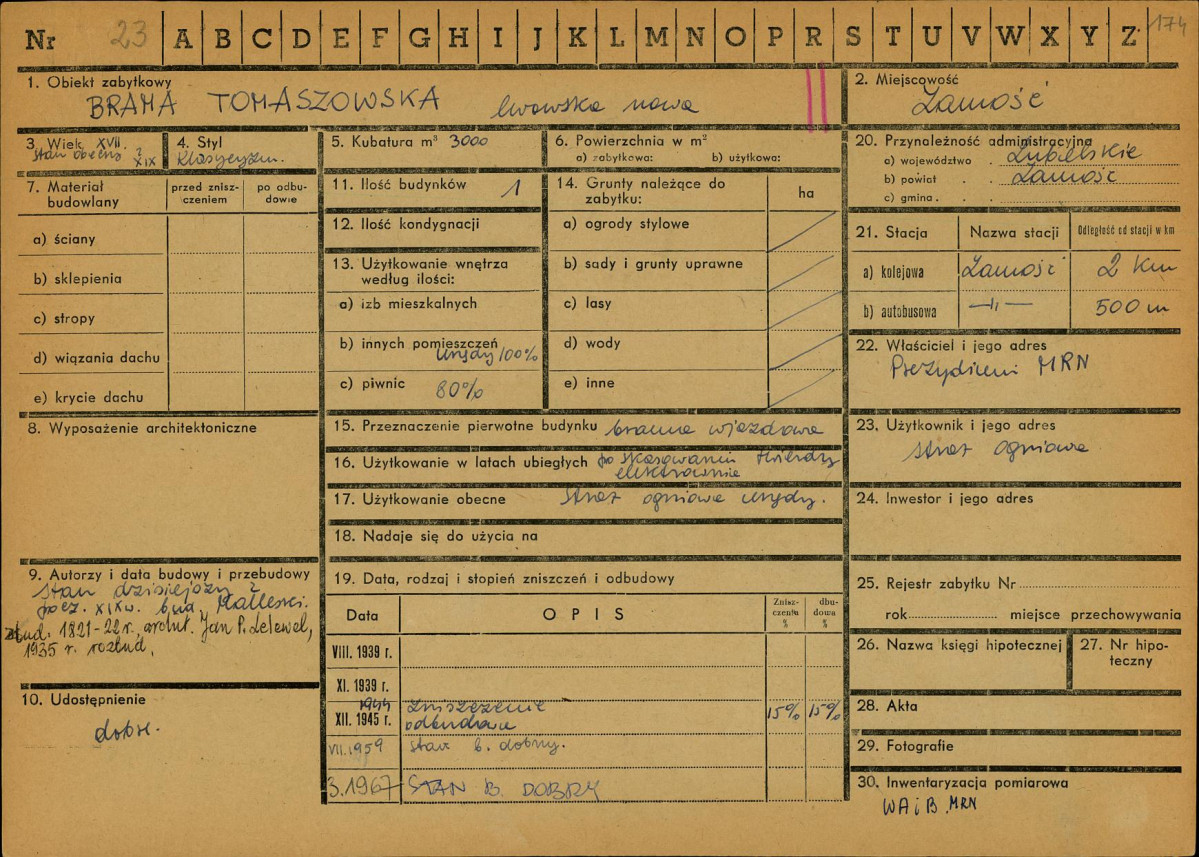 Nr 23 A B C D E F G H I J K L M N O P R S T U V W X Y Z 174
1. Obiekt zabytkowy
BRAMA TOMASZOWSKA lwowska nowa
2. Miejscowość
Zamość
3. Wiek XVII.
stan obecny z XIX
4. Styl
Klasycyzm.
5. Kubatura m³ 3000
6. Powierzchnia w m²
a) zabytkowa: b) użytkowa:
20. Przynależność administracyjna
a) województwo . Lubelskie
b) powiat . . Zamość
c) gmina . .
7. Materiał budowlany
przed znisz-
czeniem
po odbu-
dowie
a) ściany
b) sklepienia
c) stropy
d) wiązania dachu
e) krycie dachu
11. Ilość budynków 1
12. Ilość kondygnacji
13. Użytkowanie wnętrza
według ilości:
a) izb mieszkalnych
b) innych pomieszczeń
urzędy 100%
c) piwnic 80%
14. Grunty należące do
zabytku:
ha
a) ogrody stylowe
b) sady i grunty uprawne
c) lasy
d) wody
e) inne
21. Stacja Nazwa stacji Odległość od stacji w km
a) kolejowa Zamość 2 Km
b) autobusowa —„— 500 m
22. Właściciel i jego adres
Prezydium MRN
8. Wyposażenie architektoniczne
15. Przeznaczenie pierwotne budynku brama wjazdowa
16. Użytkowanie w latach ubiegłych po skasowaniu twierdzy
elektrownia
17. Użytkowanie obecne straż ogniowa urzędy.
18. Nadaje się do użycia na
23. Użytkownik i jego adres
straż ogniowa
24. Inwestor i jego adres
9. Autorzy i data budowy i przebudowy
stan dzisiejszy z
pocz. XIX w. bud.
zbud. 1821-22 r., archit. Jan P. Lelewel,
1935 r. rozbud.
10. Udostępnienie
dobre.
19. Data, rodzaj i stopień zniszczeń i odbudowy
Data OPIS Znisz-
czenia
% dbu-
dowa
%
VIII. 1939 r.
XI. 1939 r.
1944 zniszczenie
XII. 1945 r. odbudowa 15% 15%
VII. 1959 stan b. dobry.
3.1967 STAN B. DOBRY
25. Rejestr zabytku Nr
rok miejsce przechowywania
26. Nazwa księgi hipotecznej
27. Nr hipo-
teczny
28. Akta
29. Fotografie
30. Inwentaryzacja pomiarowa
WA i B. MRN